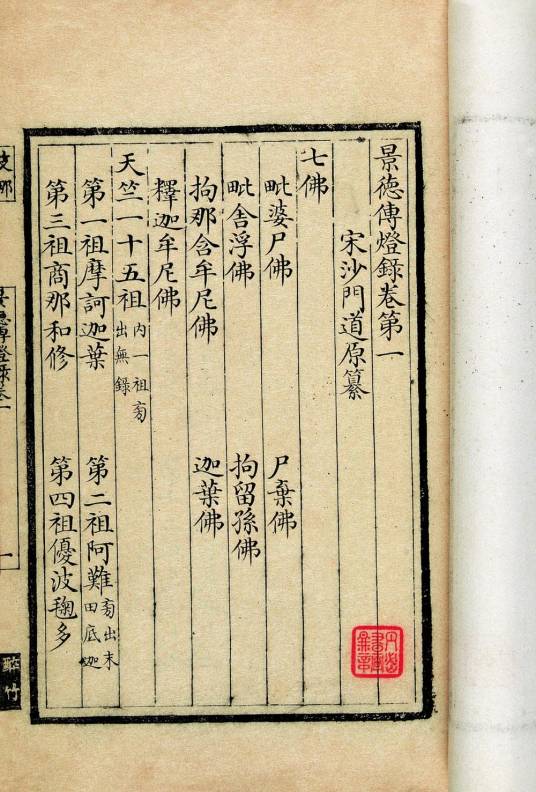 景徳傳燈錄卷第一
宋沙門道原纂
七佛
毗婆尸佛 尸棄佛
毗舍浮佛 拘留孫佛
拘那含牟尼佛 迦葉佛
釋迦牟尼佛
天竺一十五祖 内一祖㫄出無錄
第一祖摩訶迦葉 第二祖阿難 㫄出末田底迦
第三祖商那和修 第四祖優波毱多
支那
景德傳燈錄卷一
一